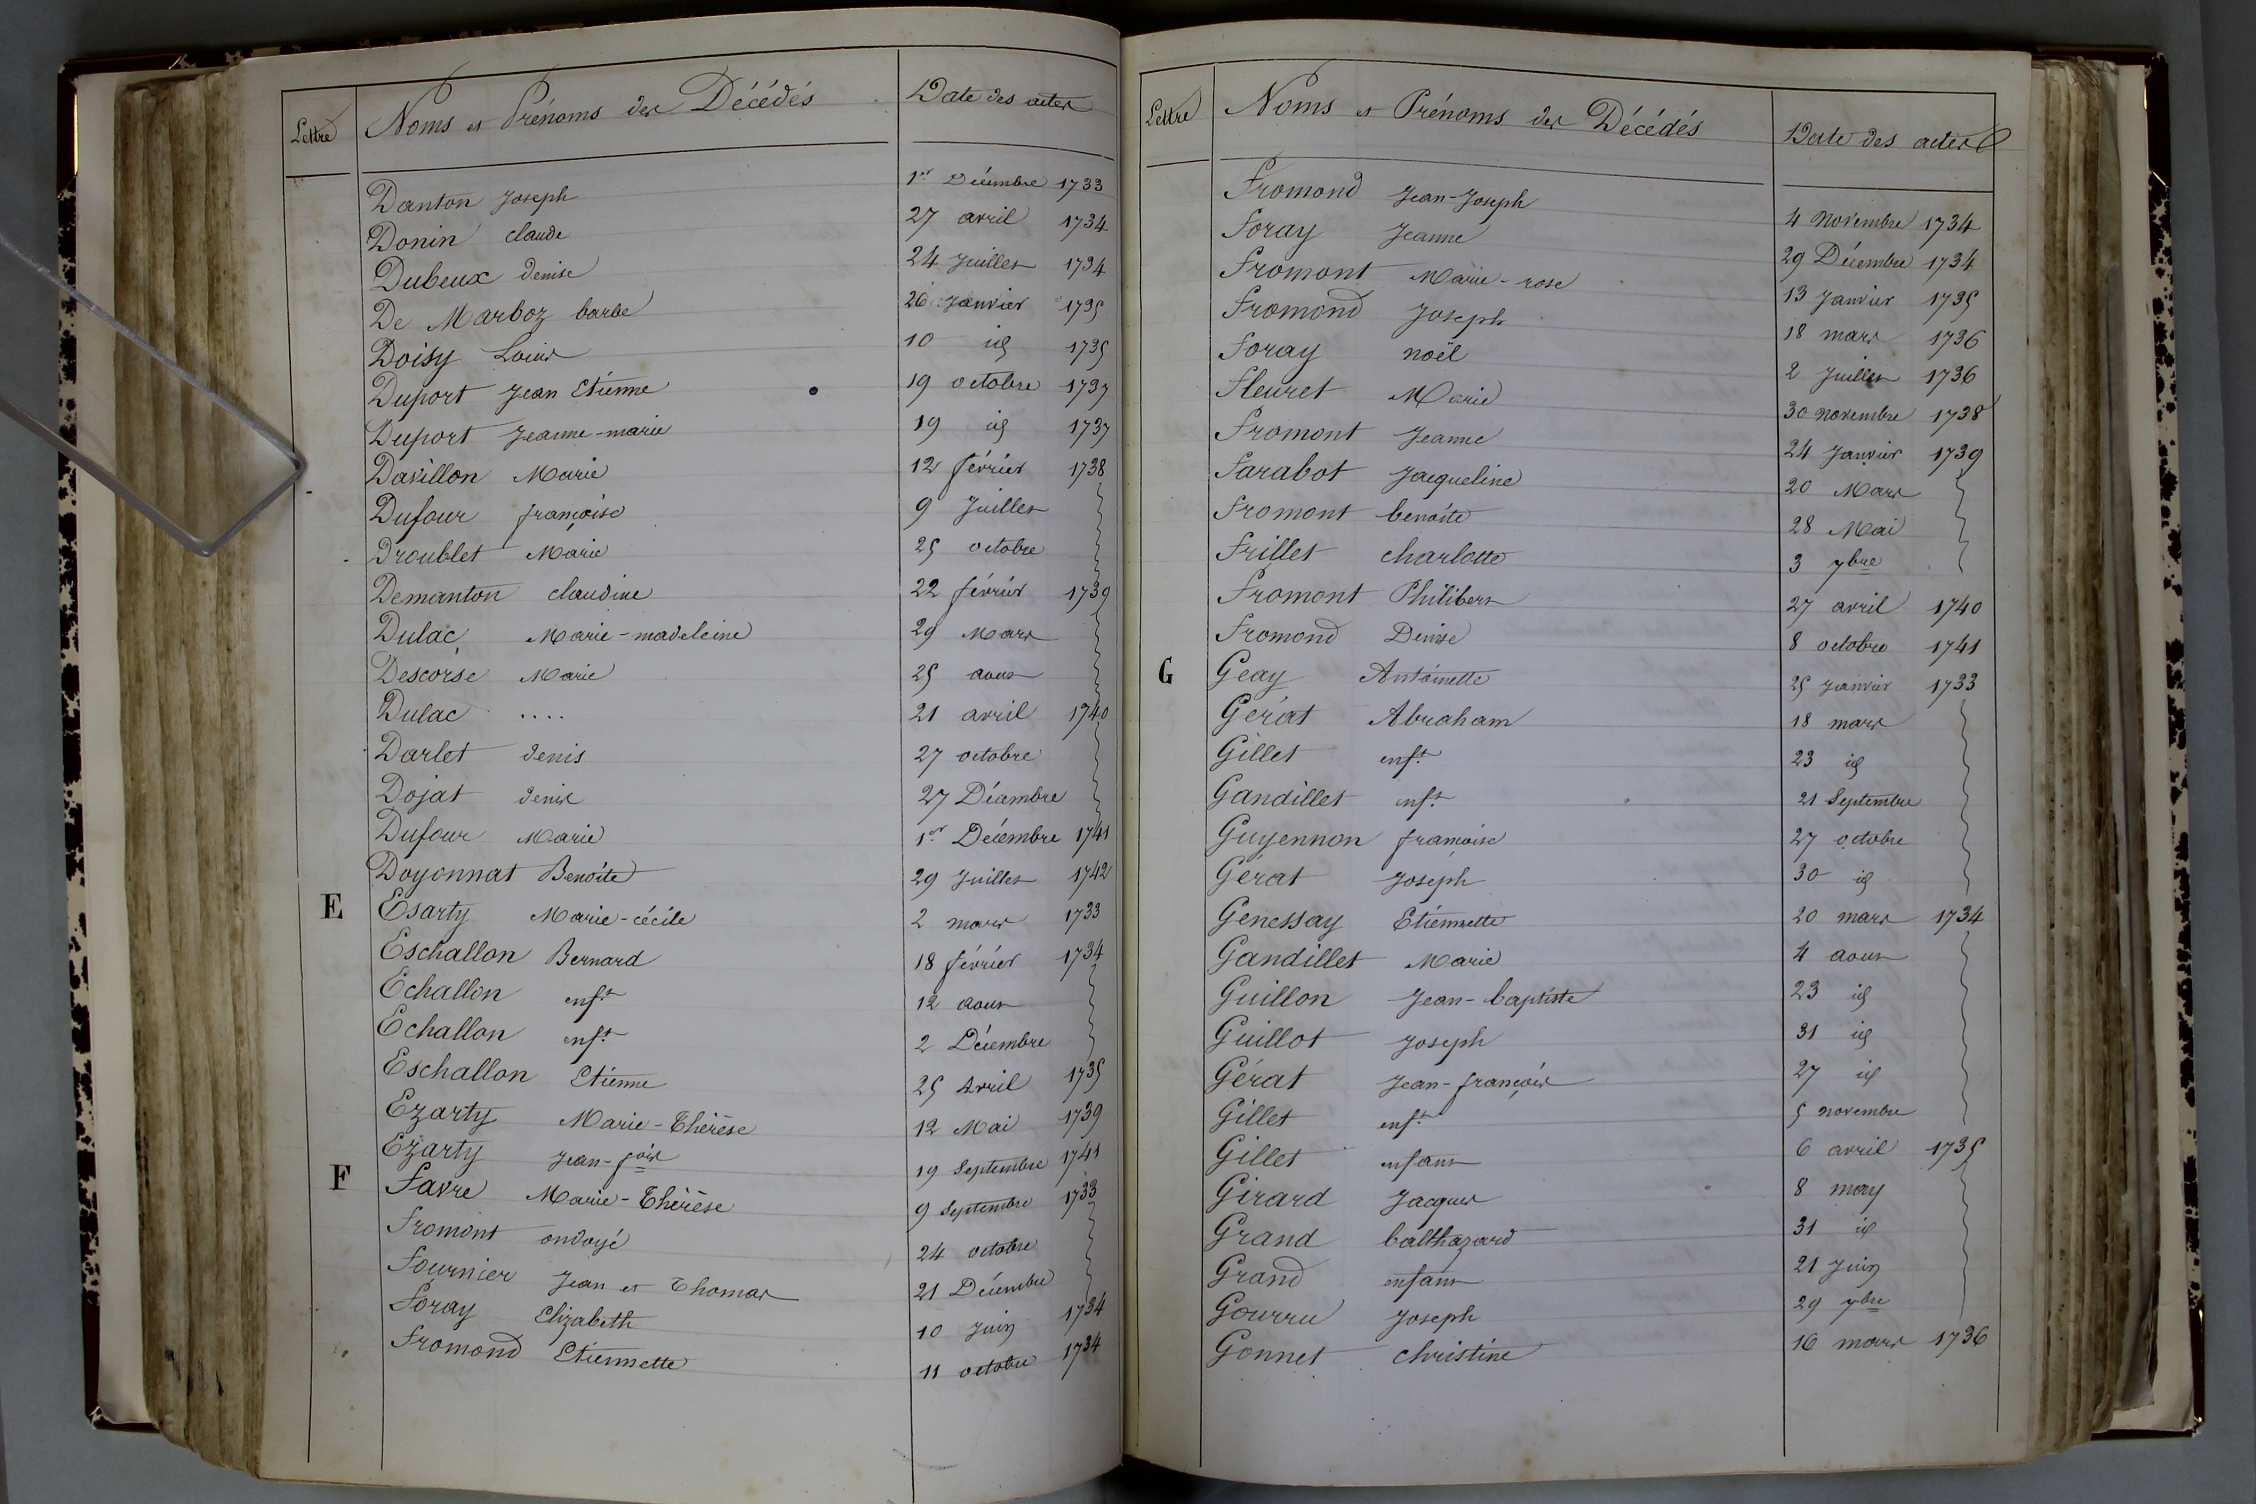 Lettre Noms et Prénoms des Décédés Date des actes
Danton Joseph 1er Décembre 1733
Donin claude 27 avril 1734
Dubeux denise 24 Juillet 1734
De Marboz barbe 26 Janvier 1735
Doisy Louis 10 id 1735
Duport Jean Etienne 19 octobre 1737
Duport Jeanne-marie 19 id 1737
Davillon Marie 12 février 1738
Dufour françoise 9 Juillet
Droublet Marie 25 octobre
Demanton claudine 22 février 1739
Dulac Marie-madeleine 29 Mars
Descorse Marie 25 aout
Dulac .... 21 avril 1740
Darlet denis 27 octobre
Dojat denis 27 Décembre
Dufour Marie 1er Décembre 1741
Doyonnat Benoite 29 Juillet 1742
E Esarty Marie-cécile 2 mars 1733
Eschallon Bernard 18 février 1734
Echallon enft 12 aout
Echallon enft 2 Décembre
Eschallon Etienne 25 Avril 1735
Ezarty Marie-Thérèse 12 Mai 1739
Ezarty Jean-fois 19 Septembre 1741
F Favre Marie-Thérèse 9 Septembre 1733
Fromont ondoyé 24 octobre
Fournier Jean et Thomas 21 Décembre
Foray Elizabeth 10 Juin 1734
Fromond Etiennette 11 octobre 1734
Lettre Noms et Prénoms des Décédés Date des actes
Fromond Jean-Joseph 4 Novembre 1734
Foray Jeanne 29 Décembre 1734
Fromont Marie-rose 13 Janvier 1735
Fromond Joseph 18 mars 1736
Foray noël 2 Juillet 1736
Fleuret Marie 30 novembre 1738
Fromont Jeanne 24 Janvier 1739
Farabot Jacqueline 20 Mars
Fromont benoite 28 Mai
Frillet charlotte 3 7bre
Fromont Philibert 27 avril 1740
Fromond Denise 8 octobre 1741
G Geay Antoinette 25 Janvier 1733
Gérat Abraham 18 mars
Gillet enft 23 id
Gandillet enft 21 Septembre
Guyennon françoise 27 octobre
Gérat Joseph 30 id
Genessay Etiennette 20 mars 1734
Gandillet Marie 4 aout
Guillon Jean-baptiste 23 id
Guillot Joseph 31 id
Gérat Jean-françois 27 id
Gillet enft 5 novembre
Gillet enfant 6 avril 1735
Girard Jacques 8 may
Grand balthazard 31 id
Grand enfant 21 Juin
Gourru Joseph 29 7bre
Gonnet christine 16 mars 1736